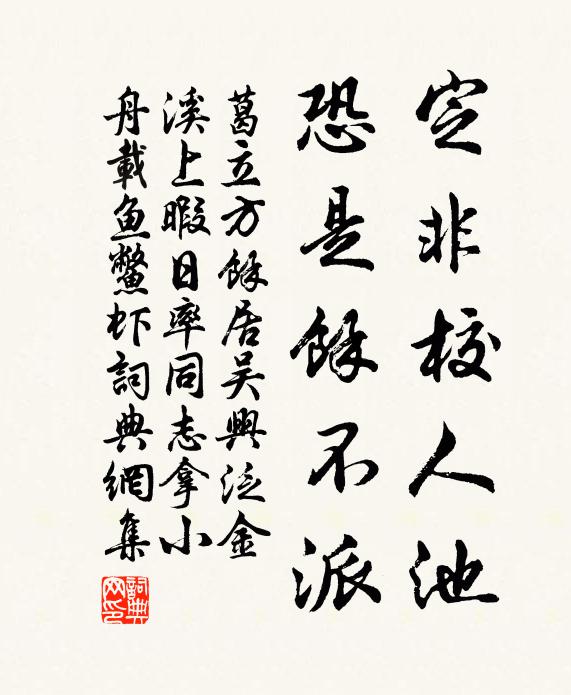 定非校人池
恐是餘不派
葛立方餘居吴興泛金
溪上暇日率同志拿小
舟載魚鱉虾詞典網集
詞典网印